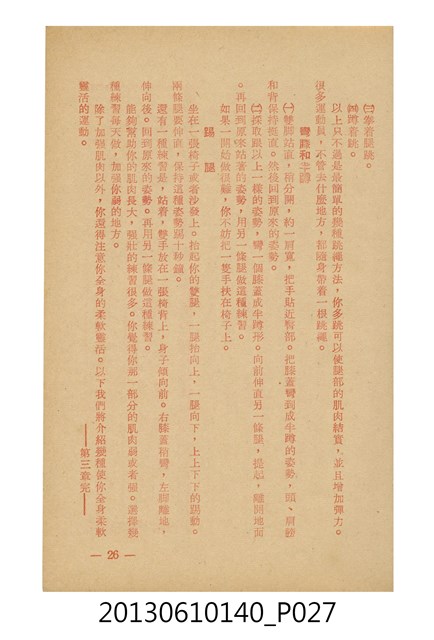 ㈢舉着腿跳。
㈣蹲着跳。
以上只不過是最簡單的幾種跳繩方法,你多跳可以使腿部的肌肉結實,並且增加彈力。
很多運動員,不管去什麼地方,都隨身帶着一根跳繩。
彎膝和半蹲
㈠雙脚站直,稍分開,約一肩寬,把手貼近胸部。把膝蓋彎到成半蹲的姿勢,頭、肩膀
和背保持挺直。然後回到原來的姿勢。
㈡採取跟以上一樣的姿勢,彎一個膝蓋成半蹲形。向前伸直另一條腿,提起,離開地面
。再回到原來站著的姿勢,用另一條腿做這種練習。
如果一開始做很難,你不妨把一隻手扶在椅子上。
踢腿
坐在一張椅子或者沙發上。抬起你的雙腿,一腿抬向上,一腿向下,上上下下的踢動。
兩條腿要伸直,保持這種姿勢爲十秒鐘。
還有一種練習是,站着,雙手放在一張椅背上,身子傾向前。右膝蓋稍彎,左脚離地,
伸向後。回到原來的姿勢。再用另一條腿做這種練習。
能夠幫助你的肌肉長大,强壯的練習很多。你覺得你那一部分的肌肉弱或者弱。選擇幾
種練習每天做,加强你弱的地方。
除了加强肌肉以外,你還得注意你全身的柔軟靈活。以下我們將介紹幾種使你全身柔軟
靈活的運動。
——第三章完——
— 26 —
20130610140_P027